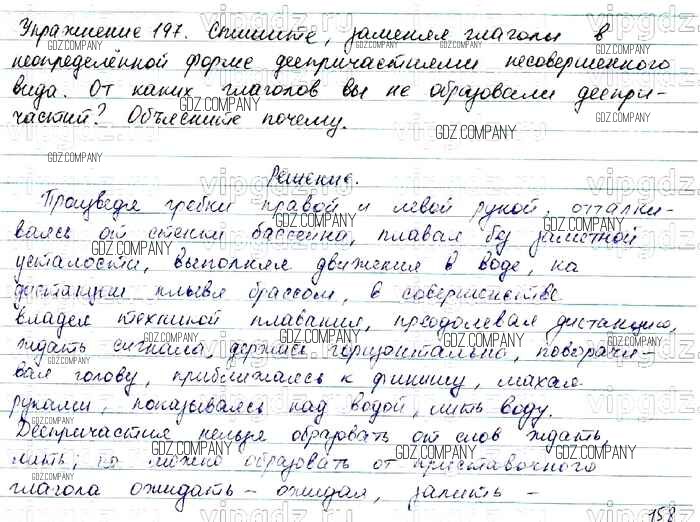 Упражнение 197. Спишите, заменяя глаголы в
неопределённой форме деепричастиями несовершенного
вида. От каких глаголов вы не образовали деепри-
частий? Объясните почему.
Решение.
Произведя гребки правой и левой рукой, отталки-
ваясь от стенки бассейна, плавая без заметной
усталости, выполняя движения в воде, на
дистанции плывя брассом, в совершенстве
владея техникой плавания, преодолевая дистанцию,
ждать сигнала, держась горизонтально, поворачи-
вая голову, приближаясь к финишу, махая
руками, показываясь над водой, лить воду.
Деепричастия нельзя образовать от слов ждать,
лить, но можно образовать от приставочного
глагола ожидать - ожидая, залить -
158